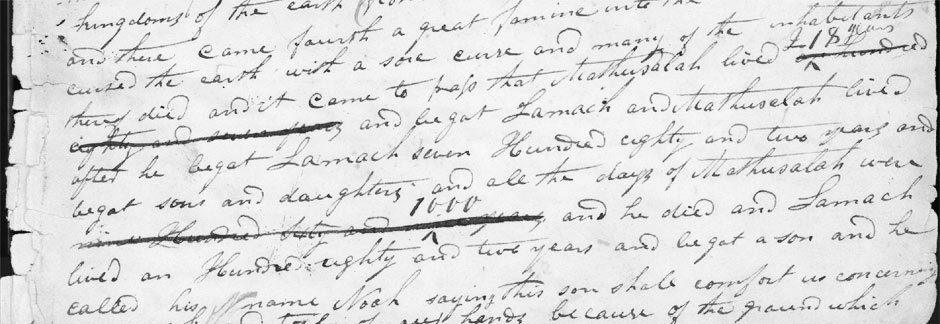 kingdoms of the earth
and there came fourth a great famine into the
cursed the earth with a sore curse and many of the inhabitants
218 years
therey died and it came to pass that Mathusalah lived an hundred
eighty and seven years and begat Lamach and Mathusalah lived
after he begat Lamach seven Hundred eighty and two years and
begat sons and daughters and all the days of Mathusalah were
1000
nine Hundred sixty and nine years and he died and Lamach
lived an Hundred eighty and two years and begat a son and he
called his name Noah saying this son shale comfort us concerning
of our hands because of the ground which